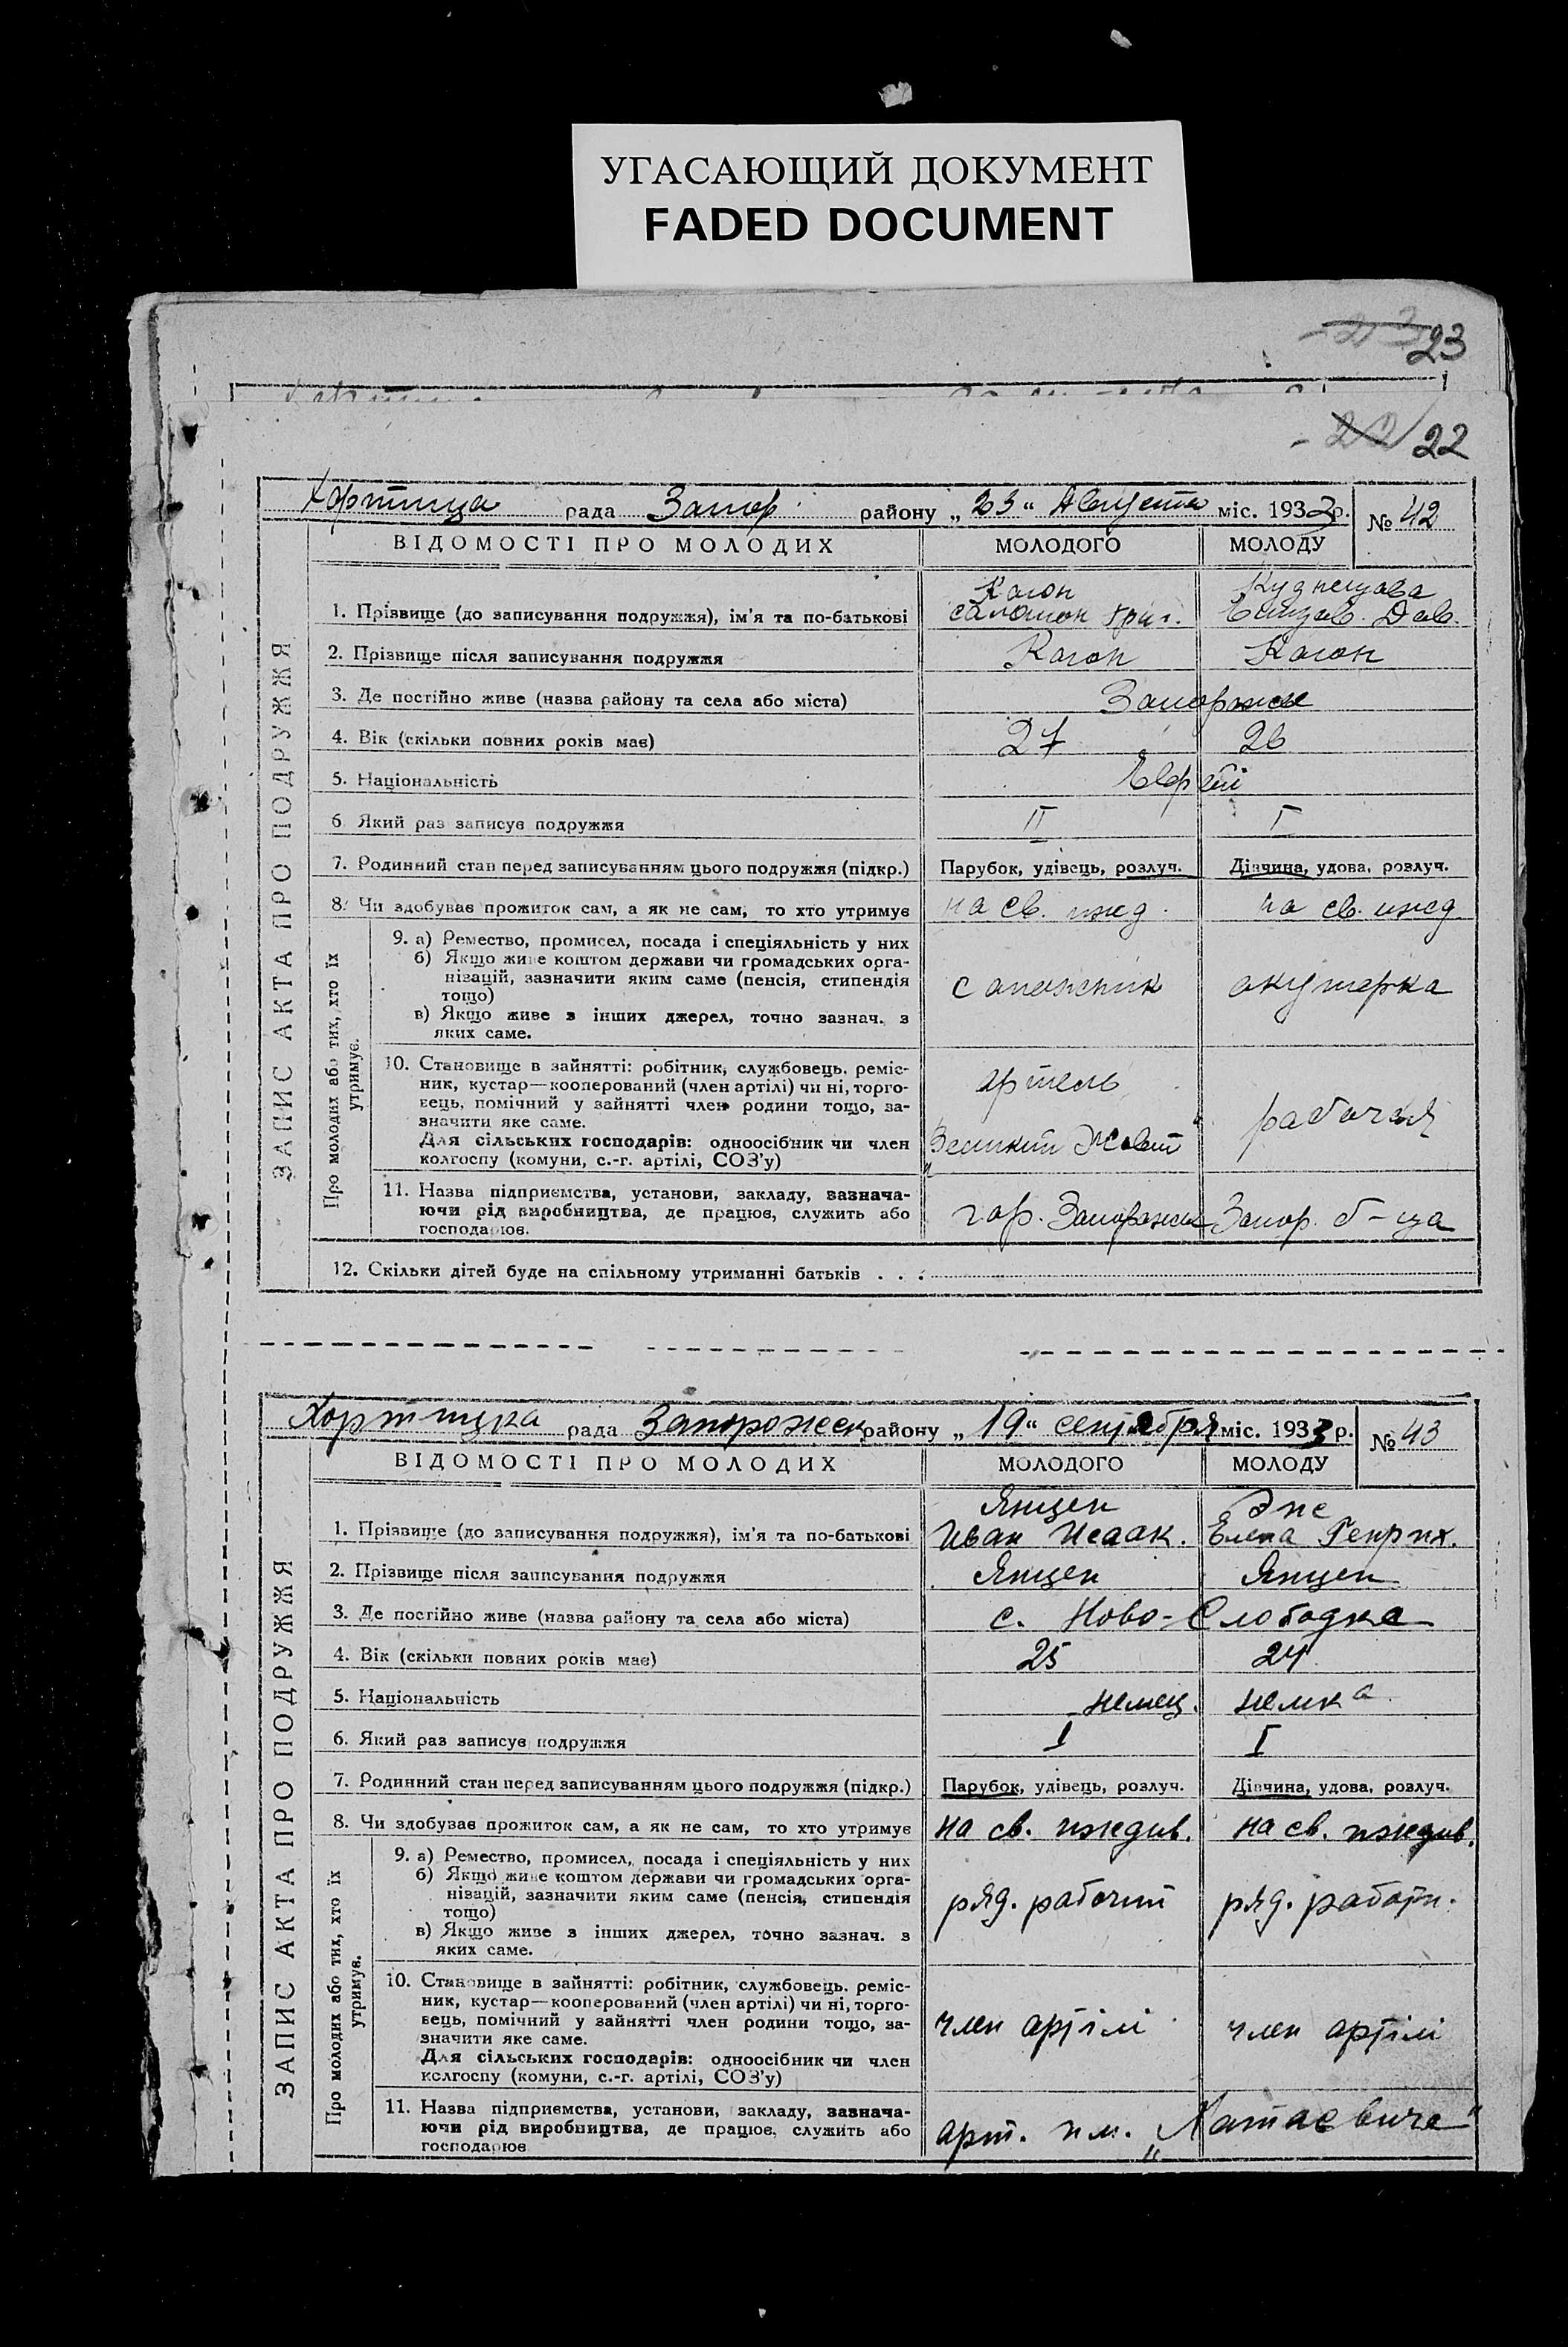 УГАСАЮЩИЙ ДОКУМЕНТ
FADED DOCUMENT
23
22
Хортица рада Запор. району „ 23 “ Августа міс. 1933 р. № 42
ВІДОМОСТІ ПРО МОЛОДИХ МОЛОДОГО МОЛОДУ
ЗАПИС АКТА ПРО ПОДРУЖЖЯ
Каган
1. Прізвище (до записування подружжя), ім'я та по-батькові Саломон Григ. Елизав. Дав.
2. Прізвище після записування подружжя Каган Каган
3. Де постійно живе (назва району та села або міста) Запорожье
4. Вік (скільки повних років має) 27 26
5. Національність Евреи
6. Який раз записує подружжя II I
7. Родинний стан перед записуванням цього подружжя (підкр.) Парубок, удівець, розлуч. Дівчина, удова, розлуч.
8. Чи здобуває прожиток сам, а як не сам, то хто утримує на св. ижд. на св. ижд
Про молодих або тих, хто їх утримує.
9. а) Ремество, промисел, посада і спеціяльність у них
б) Якщо живе коштом держави чи громадських орга-
нізацій, зазначити яким саме (пенсія, стипендія
тощо) сапожник акушерка
в) Якщо живе з інших джерел, точно зазнач. з
яких саме.
10. Становище в зайнятті: робітник, службовець, реміс-
ник, кустар—кооперований (член артілі) чи ні, торго- артель
вець, помічний у зайнятті член родини тощо, за-
значити яке саме. рабочая
Для сільських господарів: одноосібник чи член „Великий Жовт“
колгоспу (комуни, с.-г. артілі, СОЗ'у)
11. Назва підприємства, установи, закладу, зазнача-
ючи рід виробництва, де працює, служить або гор. Запорожье Запор. б-ца
господарює.
12. Скільки дітей буде на спільному утриманні батьків . . .
Хортицка рада Запорожск району „ 19 “ сентября міс. 1933 р. № 43
ВІДОМОСТІ ПРО МОЛОДИХ МОЛОДОГО МОЛОДУ
ЗАПИС АКТА ПРО ПОДРУЖЖЯ
Янцен Энс
1. Прізвище (до записування подружжя), ім'я та по-батькові Иван Исаак. Елена Генрих.
2. Прізвище після записування подружжя Янцен Янцен
3. Де постійно живе (назва району та села або міста) с. Ново-Слободка
4. Вік (скільки повних років має) 25 24
5. Національність немец. немка
6. Який раз записує подружжя I I
7. Родинний стан перед записуванням цього подружжя (підкр.) Парубок, удівець, розлуч. Дівчина, удова, розлуч.
8. Чи здобуває прожиток сам, а як не сам, то хто утримує на св. иждив. на св. иждив.
Про молодих або тих, хто їх утримує.
9. а) Ремество, промисел, посада і спеціяльність у них
б) Якщо живе коштом держави чи громадських орга-
нізацій, зазначити яким саме (пенсія, стипендія
тощо) ряд. рабочий ряд. работн.
в) Якщо живе з інших джерел, точно зазнач. з
яких саме.
10. Становище в зайнятті: робітник, службовець, реміс-
ник, кустар—кооперований (член артілі) чи ні, торго-
вець, помічний у зайнятті член родини тощо, за- член артілі член артілі
значити яке саме.
Для сільських господарів: одноосібник чи член
колгоспу (комуни, с.-г. артілі, СОЗ'у)
11. Назва підприємства, установи, закладу, зазнача-
ючи рід виробництва, де працює, служить або арт. им. „Хатаевича“
господарює